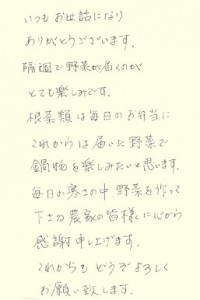 いつもお世話になり
ありがとうございます。
隔週で野菜が届くのが
とても楽しみです。
根菜類は毎日のお弁当に
これからは届いた野菜で
鍋物を楽しみたいと思います。
毎日の寒さの中、野菜を作って
下さる農家の皆様に心から
感謝申し上げます。
これからもどうぞよろしく
お願い致します。